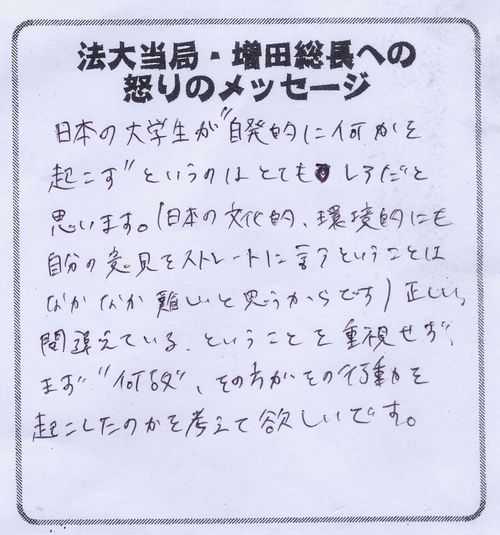 法大当局・増田総長への
怒りのメッセージ
日本の大学生が"自発的に何かを
起こす"というのはとても しろだと
思います。(日本の文化的、環境的にも
自分の意見をストレートに言うということは
なかなか難しいと思うからです)正しい、
間違えている、ということを重視せず、
まず"何故"、その方がその行動を
起こしたのかを考えて欲しいです。